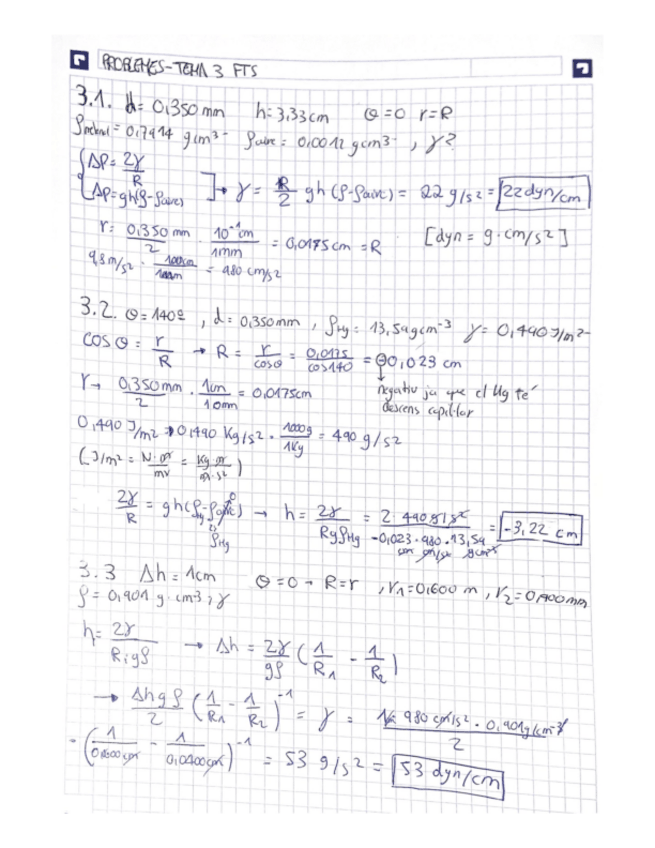 PROBLEMES-TEMA 3 FTS
3.1. d= 0,350 mm h= 3,33 cm Θ=0 r=R
ρmetanol = 0,7914 g cm3- ρaire = 0,0012 g cm3- , γ?
ΔP= 2γ/R
ΔP=gh(ρ-ρaire) → γ = R/2 gh (ρ-ρaire) = 22 g/s2 = 22 dyn/cm
r: 0,350 mm/2 · 10-1cm/1mm = 0,0175 cm = R [dyn = g·cm/s2]
9,8 m/s2 · 100cm/1m = 980 cm/s2
3.2. Θ=140º , d= 0,350mm , ρHg = 13,54 g cm-3 γ= 0,490 J/m2
cos Θ = r/R → R = r/cosΘ = 0,0175/cos140 = -0,023 cm
r → 0,350 mm/2 · 1cm/10mm = 0,0175cm
negatiu ja que el Hg té
descens capil·lar
0,490 J/m2 → 0,490 Kg/s2 · 1000g/1Kg = 490 g/s2
(J/m2 = N·m/m2 = Kg·m/m·s2)
2γ/R = gh(ρHg-ρaire) → h = 2γ/RgρHg = 2·490 g/s2/-0,023·980·13,54 = -3,22 cm
cm cm/s2 g cm3
ρHg
3.3 Δh = 1cm Θ=0 → R=r , r1=0,600 m , r2=0,400mm
ρ= 0,901 g·cm-3 , γ
h= 2γ/Rigρ → Δh = 2γ/gρ (1/R1 - 1/R2)
→ Δhgρ/2 (1/R1 - 1/R2)-1 = γ = 1· 980 cm/s2 · 0,901g/cm3/2
· (1/0,0600cm - 1/0,0400cm)-1 = 53 g/s2 = 53 dyn/cm